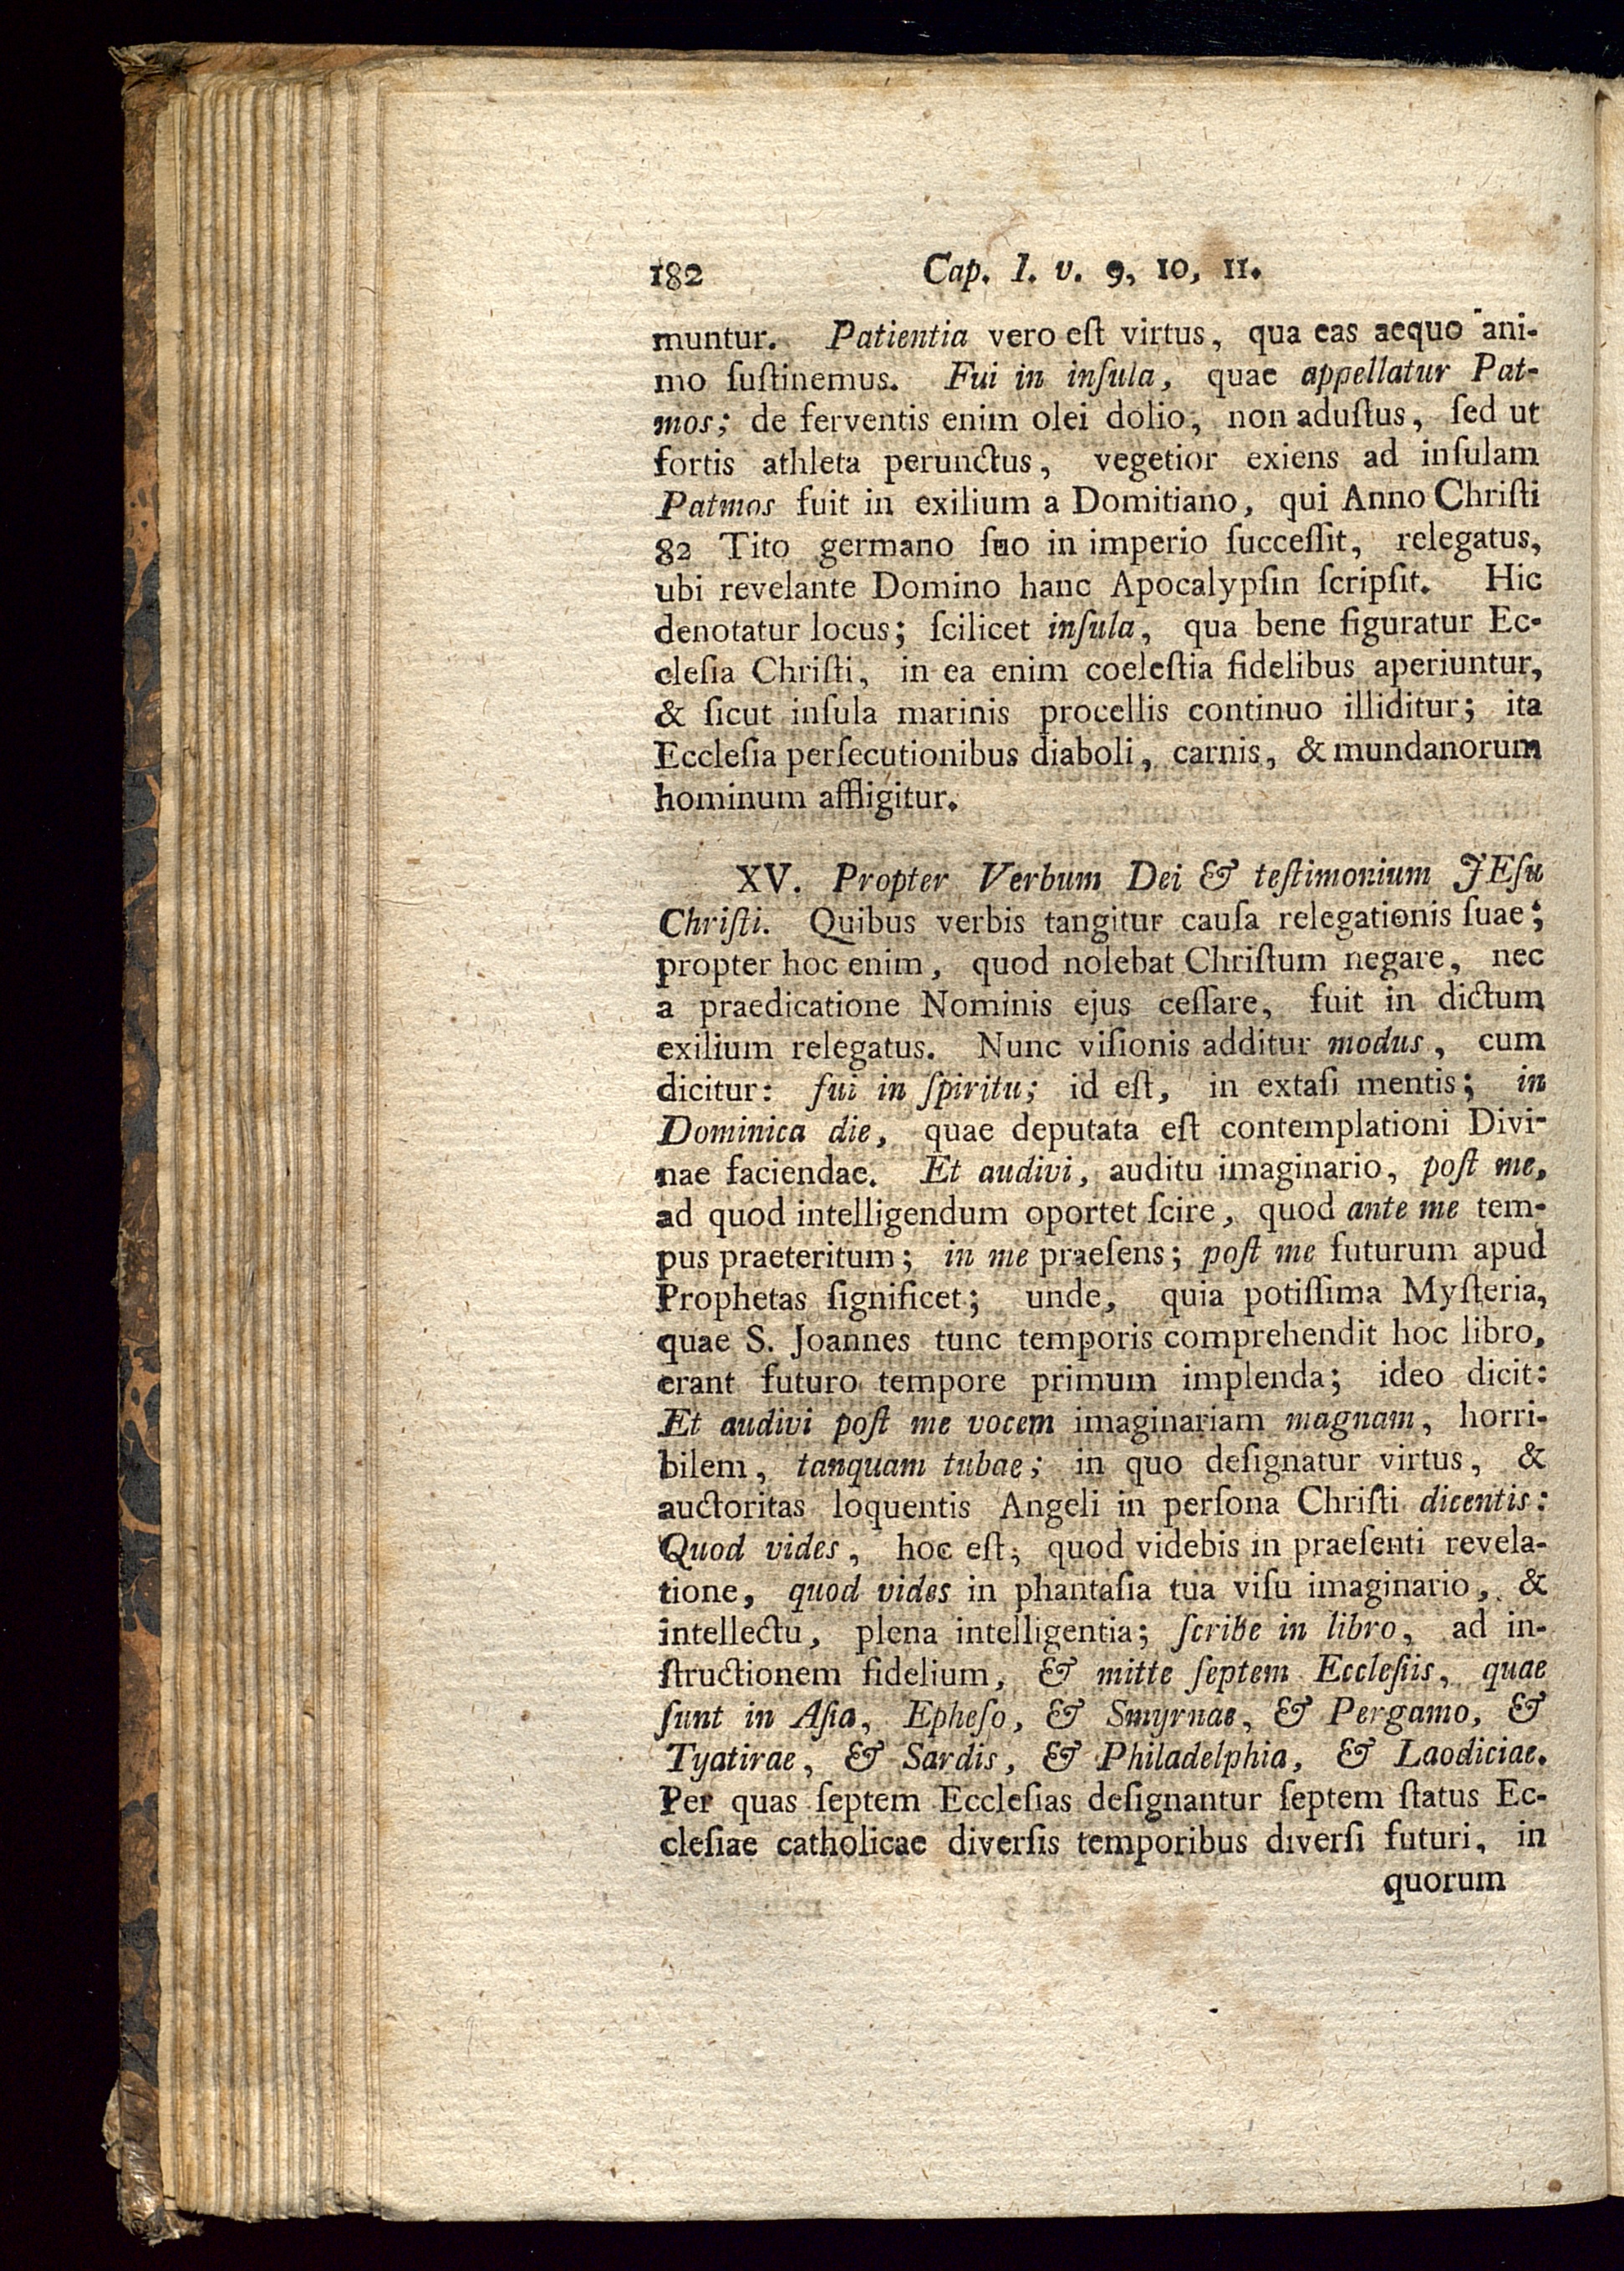 182 Cap. I. v. 9, 10, 11.
muntur. Patientia vero eſt virtus, qua eas aequo ani-
mo ſuſtinemus. Fui in inſula, quae appellatur Pat-
mos; de ferventis enim olei dolio, non aduſtus, ſed ut
fortis athleta perunctus, vegetior exiens ad inſulam
Patmos fuit in exilium a Domitiano, qui Anno Chriſti
82 Tito germano ſuo in imperio ſucceſſit, relegatus,
ubi revelante Domino hanc Apocalypſin ſcripſit. Hic
denotatur locus; ſcilicet inſula, qua bene figuratur Ec-
cleſia Chriſti, in ea enim coeleſtia fidelibus aperiuntur,
& ſicut inſula marinis procellis continuo illiditur; ita
Eccleſia perſecutionibus diaboli, carnis, & mundanorum
hominum affligitur.
XV. Propter Verbum Dei & teſtimonium JEſu
Chriſti. Quibus verbis tangitur cauſa relegationis ſuae;
propter hoc enim, quod nolebat Chriſtum negare, nec
a praedicatione Nominis ejus ceſſare, fuit in dictum
exilium relegatus. Nunc viſionis additur modus, cum
dicitur: fui in ſpiritu; id eſt, in extaſi mentis; in
Dominica die, quae deputata eſt contemplationi Divi-
nae faciendae. Et audivi, auditu imaginario, poſt me,
ad quod intelligendum oportet ſcire, quod ante me tem-
pus praeteritum; in me praeſens; poſt me futurum apud
Prophetas ſignificet; unde, quia potiſſima Myſteria,
quae S. Joannes tunc temporis comprehendit hoc libro,
erant futuro tempore primum implenda; ideo dicit:
Et audivi poſt me vocem imaginariam magnam, horri-
bilem, tanquam tubae; in quo deſignatur virtus, &
auctoritas loquentis Angeli in perſona Chriſti dicentis:
Quod vides, hoc eſt, quod videbis in praeſenti revela-
tione, quod vides in phantaſia tua viſu imaginario, &
intellectu, plena intelligentia; ſcribe in libro, ad in-
ſtructionem fidelium, & mitte ſeptem Eccleſiis, quae
ſunt in Aſia, Epheſo, & Smyrnae, & Pergamo, &
Tyatirae, & Sardis, & Philadelphia, & Laodiciae.
Per quas ſeptem Eccleſias deſignantur ſeptem ſtatus Ec-
cleſiae catholicae diverſis temporibus diverſi futuri, in
quorum